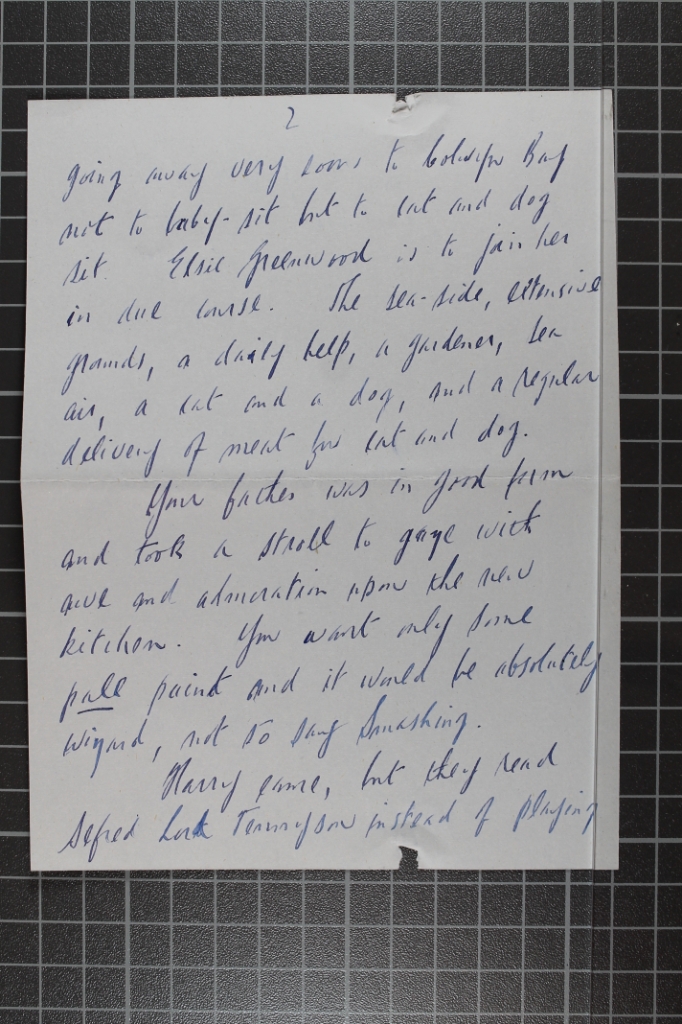 2
going away very soon to Colwyn Bay
not to baby-sit but to cat and dog
sit. Elsie Greenwood is to join her
in due course. The sea-side, extensive
grounds, a daily help, a gardener, sea
air, a cat and a dog, and a regular
delivery of meat for cat and dog.
Your father was in good form
and took a stroll to gaze with
awe and admiration upon the new
kitchen. You want only some
pale paint and it would be absolutely
wizard, not to say smashing.
Harry came, but they read
Alfred Lord Tennyson instead of playing